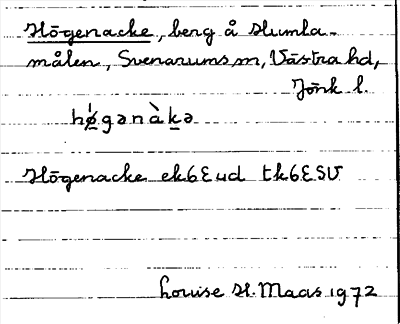 Högenacke, berg å Humla-
målen, Svenarums sn, Västra hd,
Jönk l.
hø̀gənàkə
Högenacke ek6Eud tk6ESV
Louise H. Maas 1972